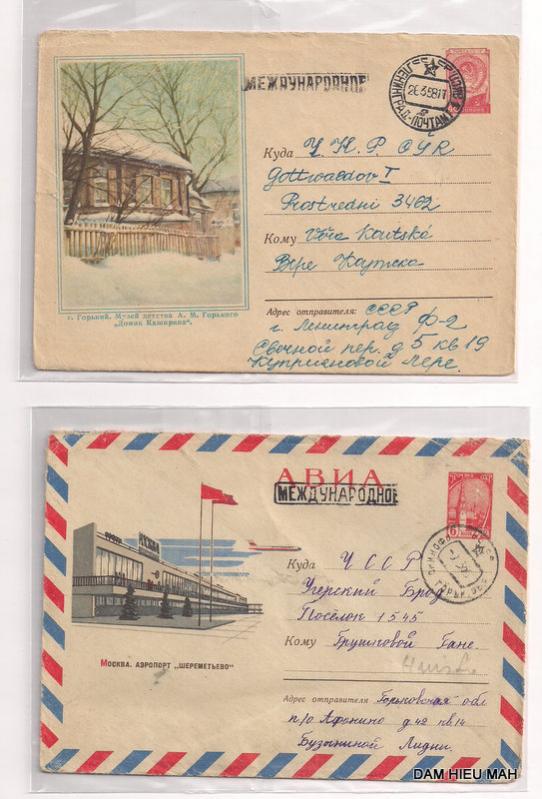 МЕЖДУНАРОДНОЕ
ЛЕНИНГРАД-ПОЧТАМТ
2635817
Куда Ч.К.Р. ČSR
Gottwaldov I
Prostredni 3462
Кому Věra Koutská
Вере
г. Горький. Музей детства А. М. Горького
„Домик Каширина“.
Адрес отправителя: СССР
г. Ленинград Ф-2
Свечной пер. д 5 кв 19
Куприяновой Лере.
АВИА
МЕЖДУНАРОДНОЕ
6
Куда ЧССР
Угерский Брод
Посёлок 1545
Кому Грушковой Гане.
МОСКВА. АЭРОПОРТ „ШЕРЕМЕТЬЕВО“
Адрес отправителя Горьковская обл
п/о Афонино д 42 кв 14
Бузыниной Лидии.
DAM HIEU MAH